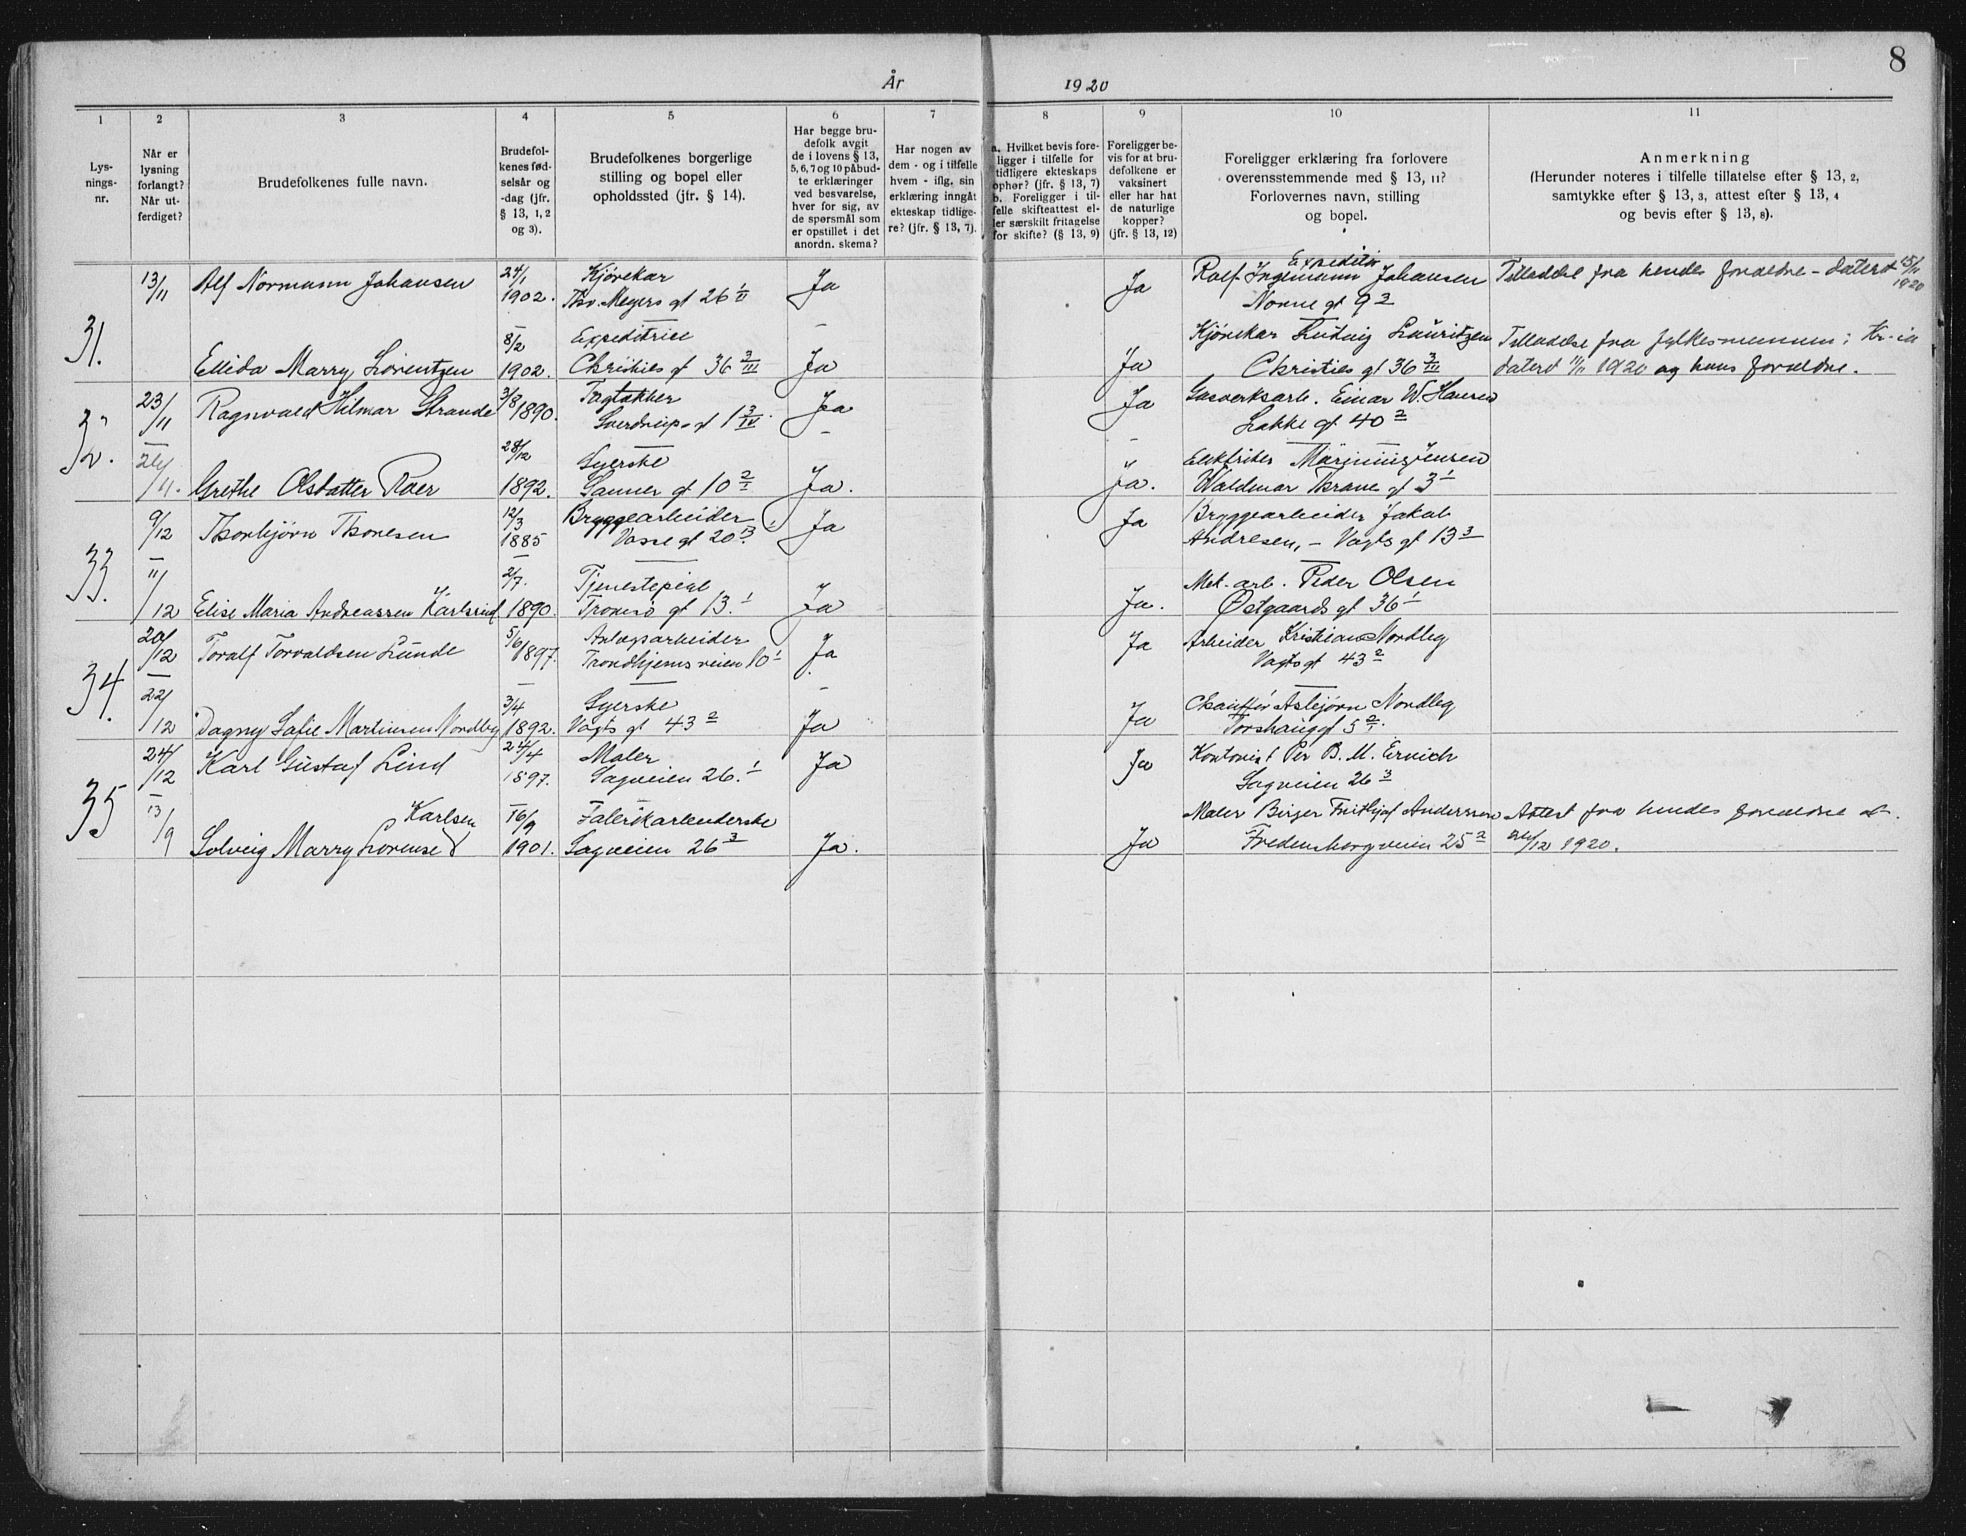 8
År 1920
1 2 3 4 5 6 7 8 9 10 11
Lys-
nings-
nr.
Når er
lysning
forlangt?
Når ut-
ferdiget?
Brudefolkenes fulle navn.
Brudefol-
kenes fød-
selsår og
-dag (jfr.
§ 13, 1, 2
og 3).
Brudefolkenes borgerlige
stilling og bopel eller
opholdssted (jfr. § 14).
Har begge bru-
defolk avgit
de i lovens § 13,
5, 6, 7 og 10 påbud-
te erklæringer
ved besvarelse,
hver for sig, av
de spørsmål som
er opstillet i det
anordn. skema?
Har nogen av
dem - og i tilfelle
hvem - iflg. sin
erklæring inngåt
ekteskap tidlige-
re? (jfr. § 13, 7).
a. Hvilket bevis fore-
ligger i tilfelle for
tidligere ekteskaps
ophør? (jfr. § 13, 7)
b. Foreligger i til-
felle skifteattest el-
ler særskilt fritagelse
for skifte? (§ 13, 9)
Foreligger be-
vis for at bru-
defolkene er
vaksinert
eller har hat
de naturlige
kopper?
(jfr. § 13, 12)
Foreligger erklæring fra forlovere
overensstemmende med § 13, 11?
Forlovernes navn, stilling
og bopel.
Anmerkning
(Herunder noteres i tilfelle tillatelse efter § 13, 2,
samtykke efter § 13, 3, attest efter § 13, 4
og bevis efter § 13, 8).
31.
13/11 Alf Normann Johansen 24/1 1902. Kjørekar Ja Ja Expeditør
Thv. Meyers gt 26 1/II Ralf Ingemann Johansen Tilladelse fra hendes forældre - datert 15/11 1920
Norne gt 9 3
Ellida Marry Lorentzen 8/2 1902. Expeditrice Ja Ja Kjørekar Ludvig Lauritzen Tilladelse fra fylkesmannen i Kr-ia
Christies gt 36 3/III Christies gt 36 3/III datert 11/11 1920 og hans forældre.
32.
23/11 Ragnvald Hilmar Strande 3/8 1890. Tagtækker Ja Ja Gasverksarb. Einar W. Hansen
Sverdrups gt 1 3/IV. Lakke gt 40 2
26/11. Grethe Olsdatter Roer 28/12 1892. Syerske Ja. Ja.
Sanner gt 10 2/I Waldemar Thrane gt 3 1
33.
9/12 Thorbjørn Thoresen 12/3 1885 Bryggearbeider Ja Ja Bryggearbeider Jakob
Vosse gt 20 3. Andresen, - Vogts gt 13 3
11/12 Elise Maria Andreassen Karlsrud 2/7. 1890. Tjenestepige Ja Ja. Mek. arb. Peder Olsen
Tromsø gt 13. 1 Østgaards gt 36 1
34.
20/12 Toralf Torvaldsen Lunde 5/6 1897. Anlægsarbeider Ja Ja Arbeider Kristian Nordleg
Trondhjemsveien 10 1 Vogts gt 43 2
22/12 Dagny Sofie Martinsen Nordleg 3/4 1892. Syerske Ja Ja Chauffør Asbjørn Nordleg
Vogts gt 43 2 Torshauggt 5 2.
35
24/12 Karl Gustaf Lind 24/4 1897. Maler Ja Ja Kontorist Per B. M.
Sagveien 26. 1 Sagveien 26 3
13/9 Solveig Marry Lorense Karlsen 16/9 1901. Fabrikarbeiderske Ja. Ja Maler Birger Frithjof Anderssen Attest fra hendes forældre
Sagveien 26 3 Fredensborgveien 25 2 24/12 1920.